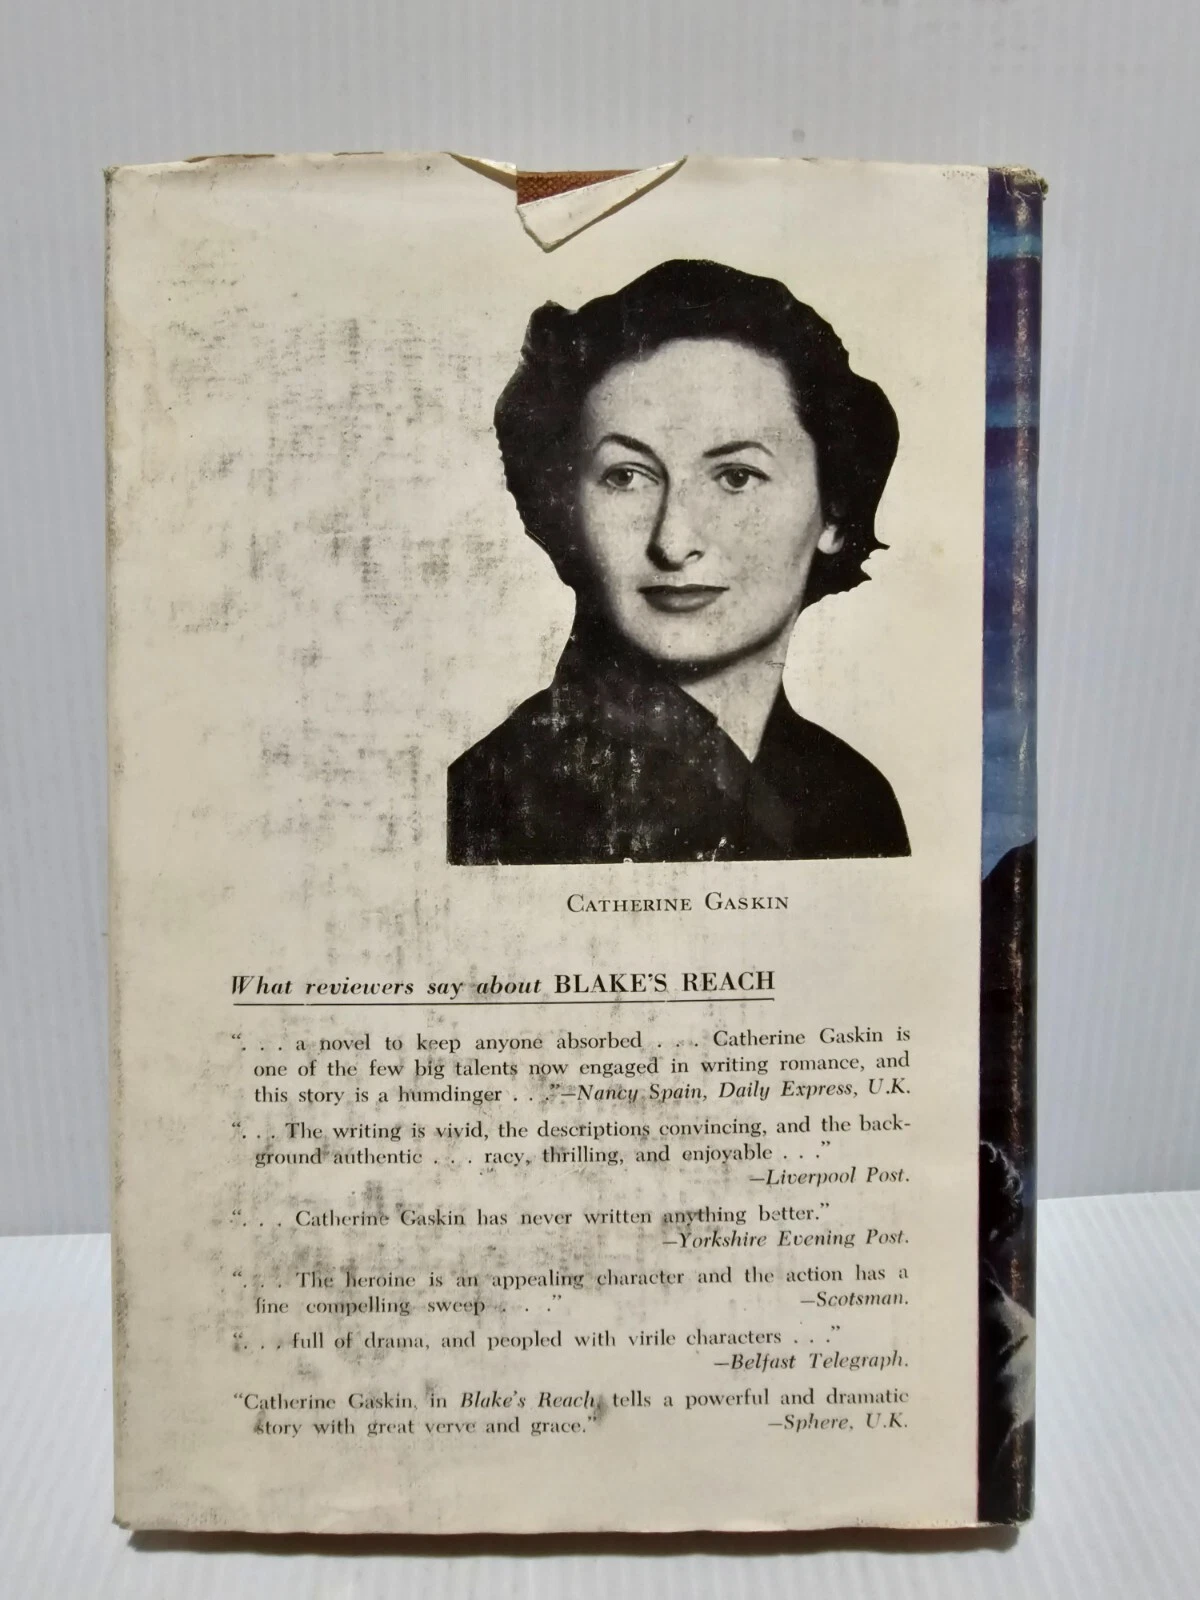 CATHERINE GASKIN
What reviewers say about BLAKE'S REACH
". . . a novel to keep anyone absorbed . . . Catherine Gaskin is
one of the few big talents now engaged in writing romance, and
this story is a humdinger . . ."—Nancy Spain, Daily Express, U.K.
". . . The writing is vivid, the descriptions convincing, and the back-
ground authentic . . . racy, thrilling, and enjoyable . . ."
—Liverpool Post.
". . . Catherine Gaskin has never written anything better."
—Yorkshire Evening Post.
". . . The heroine is an appealing character and the action has a
fine compelling sweep . . ." —Scotsman.
". . . full of drama, and peopled with virile characters . . ."
—Belfast Telegraph.
"Catherine Gaskin, in Blake's Reach, tells a powerful and dramatic
story with great verve and grace." —Sphere, U.K.